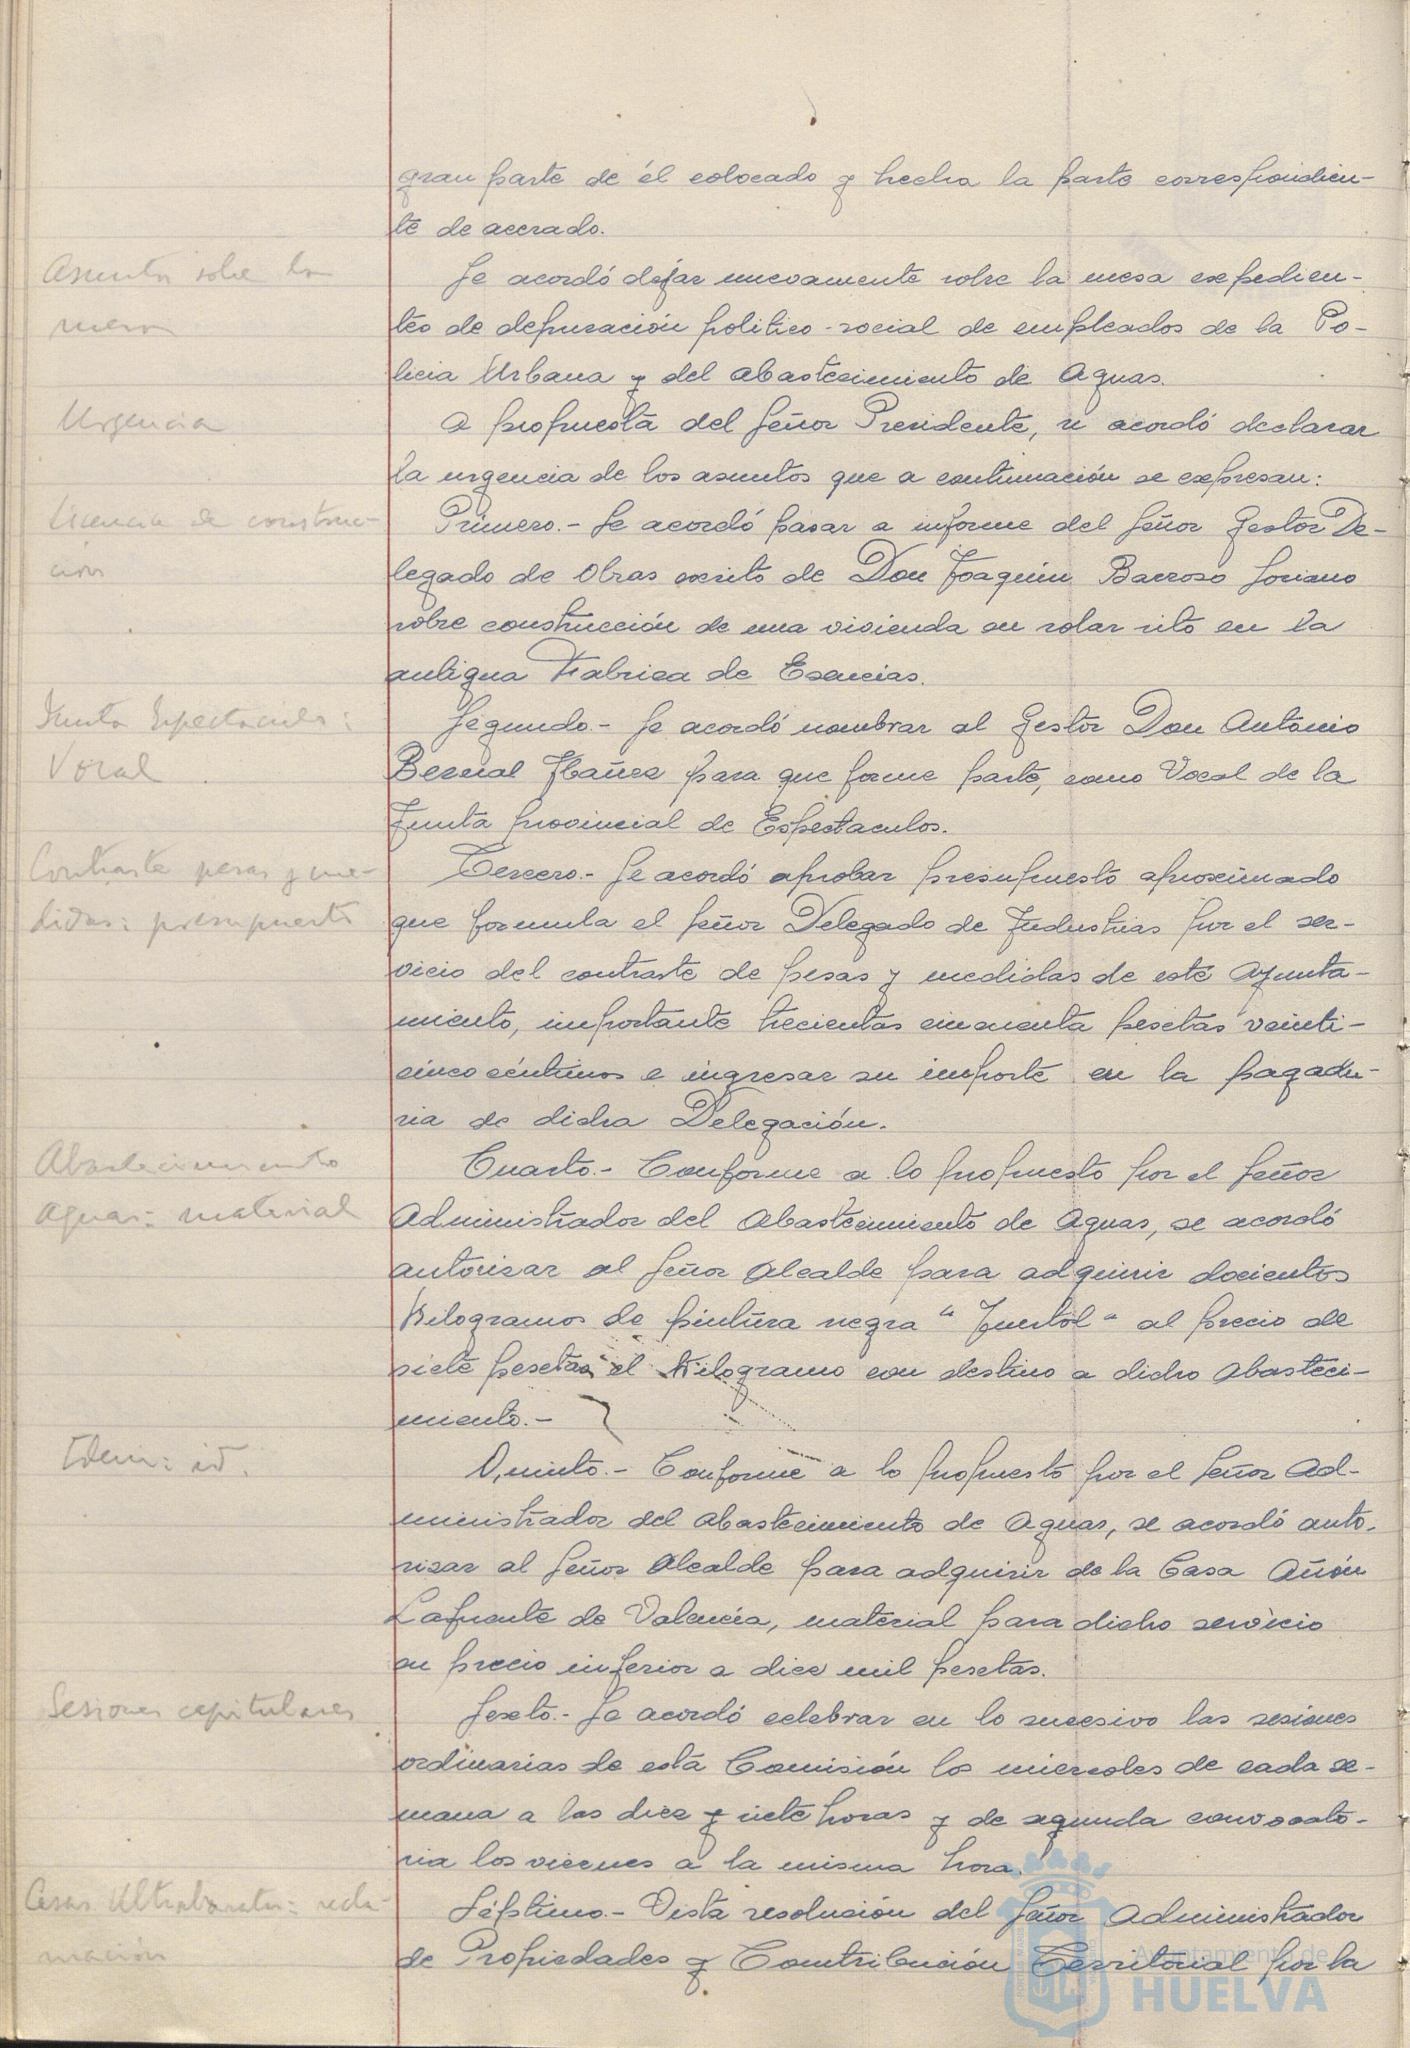 gran parte de él colocado y hecha la parte correspondien-
te de acerado.
Asuntos sobre la
mesa
Se acordó dejar nuevamente sobre la mesa expedien-
tes de depuración politico-social de empleados de la Po-
licia Urbana y del Abastecimiento de Aguas.
Urgencia
A propuesta del Señor Presidente, se acordó declarar
la urgencia de los asuntos que a continuación se expresan:
Licencia de construc-
ción
Primero.- Se acordó pasar a informe del Señor Gestor De-
legado de Obras escrito de Don Joaquin Barroso Soriano
sobre construcción de una vivienda en solar sito en la
antigua Fabrica de Esencias.
Junta Espectaculos:
Vocal
Segundo.- Se acordó nombrar al Gestor Don Antonio
Bernal Ibañez para que forme parte, como Vocal de la
Junta provincial de Espectaculos.
Contraste pesas y me-
didas: presupuesto
Tercero.- Se acordó aprobar presupuesto aproximado
que formula el Señor Delegado de Industrias por el ser-
vicio del contraste de pesas y medidas de este Ayunta-
miento, importante trecientas cincuenta pesetas veinti-
cinco céntimos e ingresar su importe en la pagadu-
ria de dicha Delegación.
Abastecimiento
Aguas: material
Cuarto.- Conforme a lo propuesto por el Señor
Administrador del Abastecimiento de Aguas, se acordó
autorizar al Señor Alcalde para adquirir docientos
Kilogramos de pintura negra " " al precio de
siete pesetas el Kilogramo con destino a dicho Abasteci-
miento.-
Idem: id.
Quinto.- Conforme a lo propuesto por el Señor Ad-
ministrador del Abastecimiento de Aguas, se acordó auto-
rizar al Señor Alcalde para adquirir de la Casa
Lafuente de Valencia, material para dicho servicio
en precio inferior a diez mil pesetas.
Sesiones capitulares
Sexto.- Se acordó celebrar en lo sucesivo las sesiones
ordinarias de esta Comisión los miercoles de cada se-
mana a las diez y siete horas y de segunda convocato-
ria los viernes a la misma hora.
Casas Ultrabaratas: recla-
mación
Séptimo.- Vista resolución del Señor Administrador
de Propiedades y Contribución Territorial por la
Ayuntamiento de
HUELVA